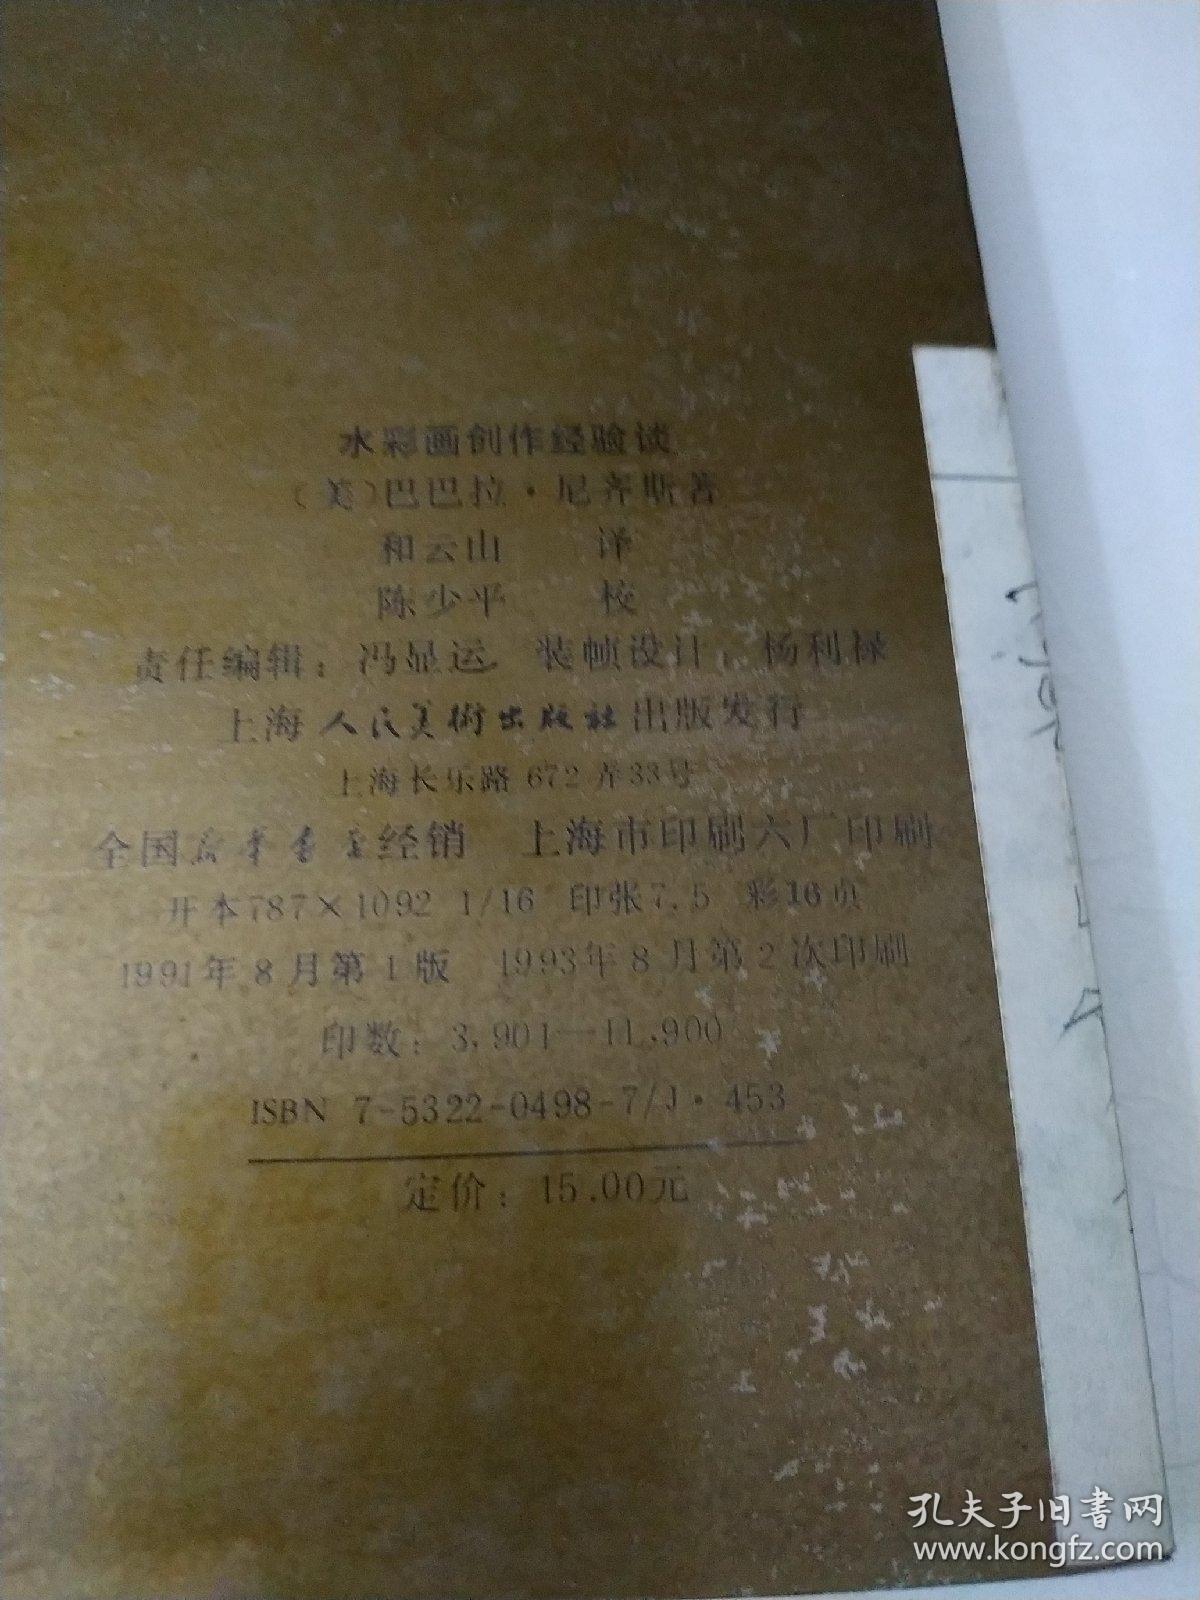 水彩画创作经验谈
(美)巴巴拉·尼齐斯著
和云山 译
陈少平 校
责任编辑：冯显运 装帧设计：杨利禄
上海人民美術出版社出版发行
上海长乐路672弄33号
全国新华书店经销 上海市印刷六厂印刷
开本787×1092 1/16 印张7.5 彩16页
1991年8月第1版 1993年8月第2次印刷
印数：3,901—11,900
ISBN 7-5322-0498-7/J·453
定价：15.00元
孔夫子旧書网
www.kongfz.com